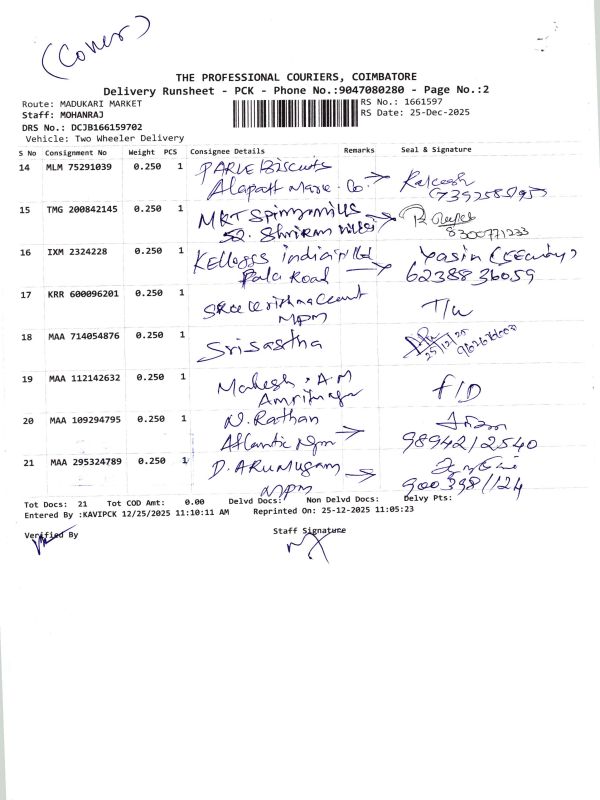 (Cover)
THE PROFESSIONAL COURIERS, COIMBATORE
Delivery Runsheet - PCK - Phone No.:9047080280 - Page No.:2
Route: MADUKARI MARKET
RS No.: 1661597
Staff: MOHANRAJ
RS Date: 25-Dec-2025
DRS No.: DCJB166159702
Vehicle: Two Wheeler Delivery
S No Consignment No Weight PCS Consignee Details Remarks Seal & Signature
14 MLM 75291039 0.250 1 PARLE Biscuits
Alapatt
15 TMG 200842145 0.250 1 MRT Spinnmills
8300771233
16 IXM 2324228 0.250 1 Kelloggs India Yasin (SEcurity)
Pala Road 62388 36059
17 KRR 600096201 0.250 1
MPM
18 MAA 714054876 0.250 1 Srisastha
25/12/25
19 MAA 112142632 0.250 1 Mahesh . A.M F/D
20 MAA 109294795 0.250 1 N. Rathan
Atlantic Ngm 98942/2540
21 MAA 295324789 0.250 1 D. ARUMUGAM
MPM 900398/124
Tot Docs: 21 Tot COD Amt: 0.00 Delvd Docs: Non Delvd Docs: Delvy Pts:
Entered By :KAVIPCK 12/25/2025 11:10:11 AM Reprinted On: 25-12-2025 11:05:23
Verified By Staff Signature